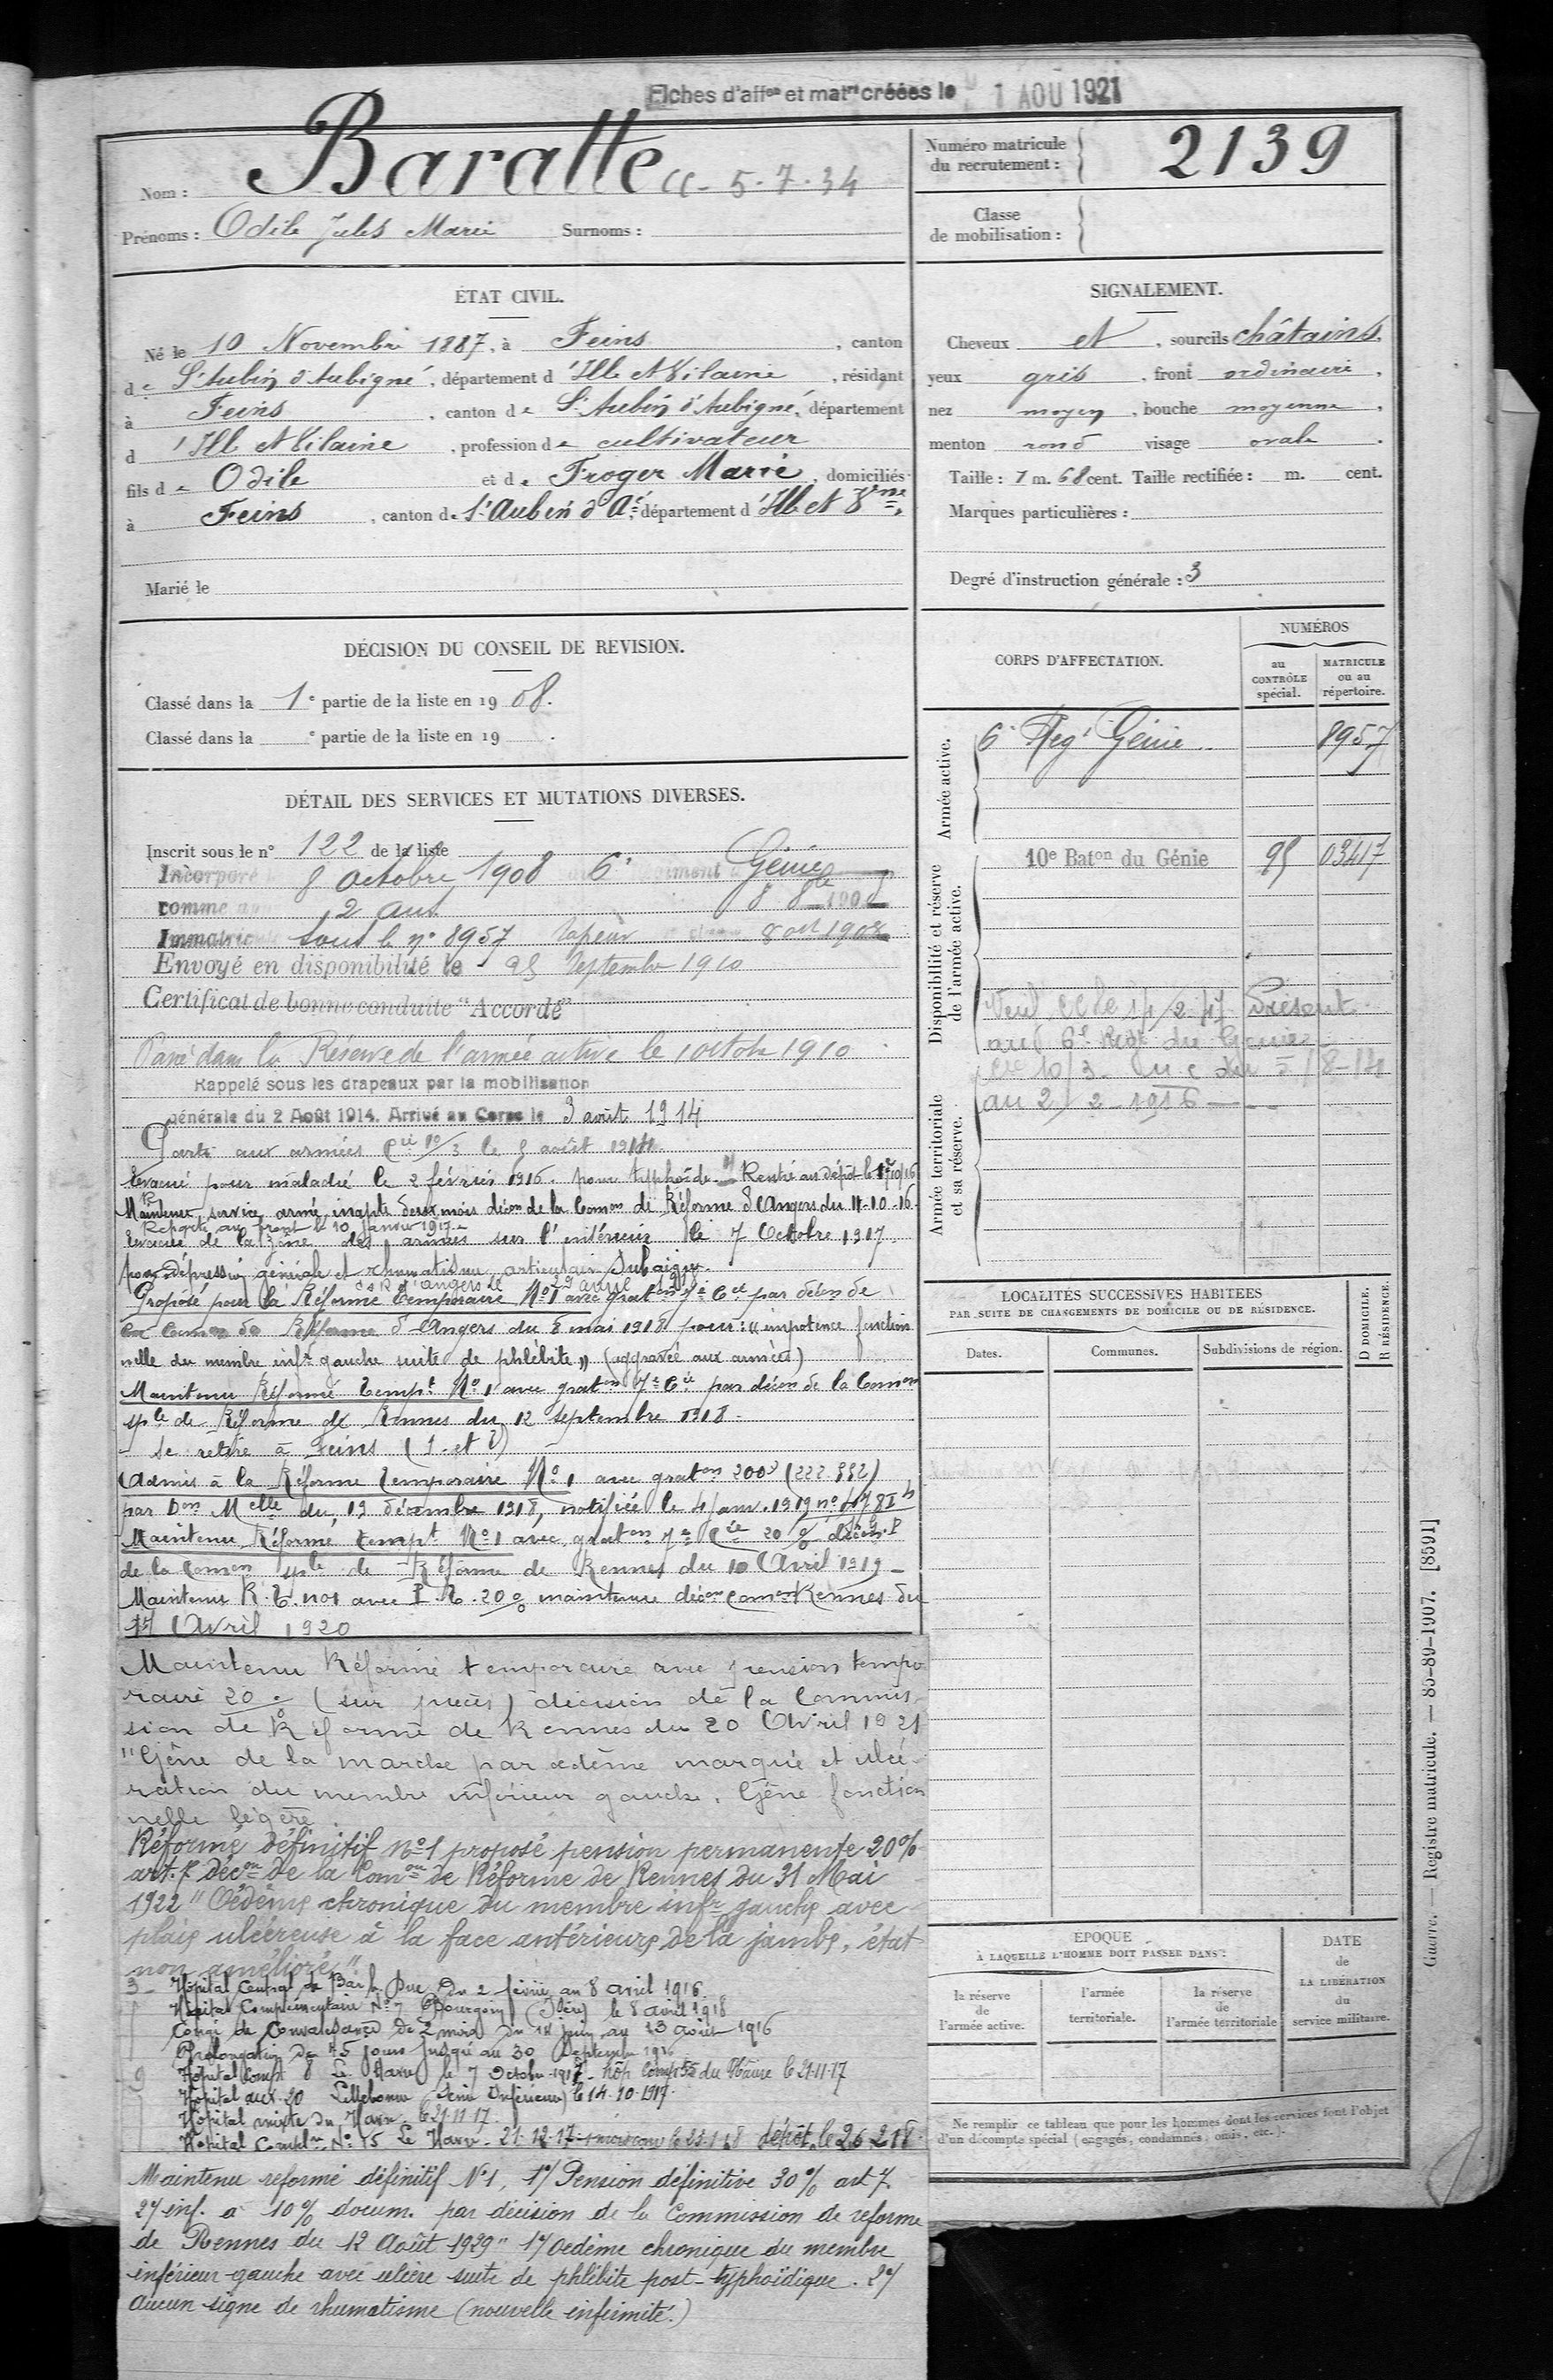 Fiches d'affon et matri créées le 1 AOU 1921
Nom : Baratte 5.7.34
Prénoms : Odile Jules Marie Surnoms :
Numéro matricule
du recrutement : 2139
Classe
de mobilisation :
ÉTAT CIVIL.
Né le 10 Novembre 1887, à Feins , canton
de St Aubin d'Aubigné, département d'Ille et Vilaine , résidant
à Feins , canton de St Aubin d'Aubigné, département
d'Ille et Vilaine , profession de cultivateur
fils de Odile et de Froger Marie , domiciliés
à Feins , canton de St Aubin d'Aé, département d'Ille et Vne,
Marié le
SIGNALEMENT.
Cheveux et , sourcils châtains,
yeux gris , front ordinaire ,
nez moyen , bouche moyenne ,
menton rond visage ovale .
Taille : 1 m. 68 cent. Taille rectifiée : m. cent.
Marques particulières :
Degré d'instruction générale : 3
DÉCISION DU CONSEIL DE REVISION.
Classé dans la 1e partie de la liste en 1908.
Classé dans la e partie de la liste en 19 .
DÉTAIL DES SERVICES ET MUTATIONS DIVERSES.
Inscrit sous le n° 122 de la liste
Incorporé 8 octobre 1908 6e Génie
comme 2 ans
Immatriculé sous le n° 8957 Sapeur 8 oct 1908
Envoyé en disponibilité le 25 Septembre 1910
Certificat de bonne conduite "Accordé"
Passé dans la Réserve de l'armée active le 1 octobre 1910
Rappelé sous les drapeaux par la mobilisation
générale du 2 Août 1914. Arrivé au Corps le 3 août 1914
Parti aux armées Cie 10/3 le 8 août 1914.
Evacué pour maladie le 2 février 1916. pour typhoïde. Rentré au dépôt le 1er/10/16
Maintenu service armé, inapte deux mois décon de la Comon de Réforme d'Angers du 11-10-16
Reparti au front le 10 janvier 1917.
Evacué de la zone des armées sur l'intérieur le 7 Octobre 1917
pour dépression générale et rhumatisme articulaire Subaigu.
C S R d'Angers le 29 avril
Proposé pour la Réforme temporaire N°1 avec graton 7e Cie par décon de
la Comon de Réforme d'Angers du 8 mai 1918 pour : "impotence fonction
nelle du membre infr gauche suite de phlébite" (aggravée aux armées)
Maintenu Réformé Tempt N°1 avec graton 7e Cie par décon de la Comon
sple de Réforme de Rennes du 12 septembre 1918.
- Se retire à Feins (I. et V)
Admis à la Réforme Temporaire N°1 avec graton 200f (222.892)
par Don Melle du 19 décembre 1918, notifiée le 4 Janv. 1919
Maintenu Réformé tempt N°1 avec graton 7e Cie 20% décon
de la Comon sple de Réforme de Rennes du 10 Avril 1919 -
Maintenu R.T. no1 avec P.T. 20% maintenue décon Comon Rennes du
17 Avril 1920
Maintenu Réformé temporaire avec pension tempo
raire 20% (sur pièces) décision de la Commis-
sion de Réforme de Rennes du 20 Avril 1921
"Gêne de la marche par œdème marqué et ulcé-
ration du membre inférieur gauche. Gêne fonction
nelle légère.
Réformé définitif N°1 proposé pension permanente 20%
art. 7 décon de la Comon de Réforme de Rennes du 31 Mai
1922 "Oedème chronique du membre infr gauche avec
plaie ulcéreuse à la face antérieure de la jambe, état
non amélioré."
3 - Hôpital Central de Bar le Duc du 2 février au 8 avril 1916.
Hôpital Complémentaire N°7 Bourgoin (Isère) le 8 avril 1918
Congé de Convalescence de 2 mois du 14 juin au 13 août 1916
Prolongation de 45 jours jusqu'au 30 Septembre 1916
9 Hôpital Compt 8 Le Havre le 7 Octobre 1917 - hôp Compt 55 du Havre le 21.11.17
Hôpital aux. 20 Lillebonne (Seine Inférieure) le 14.10.1917.
Hôpital mixte du Havre le 21.11.17.
Hôpital Complre N°15 Le Havre - 21.12.17 dépôt le 26 2 18
Maintenu réformé définitif N°1, 1°/ Pension définitive 30% art 7.
2°/ inf. à 10% docum. par décision de la Commission de réforme
de Rennes du 12 Août 1929 "1°/ Oedème chronique du membre
inférieur gauche avec ulcère suite de phlébite post-typhoïdique. 2°/
Aucun signe de rhumatisme (nouvelle infirmité.)
CORPS D'AFFECTATION.
NUMÉROS
au
CONTRÔLE
spécial.
MATRICULE
ou au
répertoire.
Armée active.
6e Régt Génie 8957
Disponibilité et réserve
de l'armée active.
10e Baton du Génie 95 03417
Présent
au 6e Régt du Génie
Cie 10/3
au 2/2 1916
Armée territoriale
et sa réserve.
LOCALITÉS SUCCESSIVES HABITÉES
PAR SUITE DE CHANGEMENTS DE DOMICILE OU DE RÉSIDENCE.
Dates. Communes. Subdivisions de région. D DOMICILE. R RÉSIDENCE.
ÉPOQUE
À LAQUELLE L'HOMME DOIT PASSER DANS :
la réserve
de
l'armée active.
l'armée
territoriale.
la réserve
de
l'armée territoriale
DATE
de
LA LIBÉRATION
du
service militaire.
Ne remplir ce tableau que pour les hommes dont les services font l'objet
d'un décompte spécial (engagés, condamnés, omis, etc.).
Guerre. — Registre matricule. — 85-89-1907. [8591]